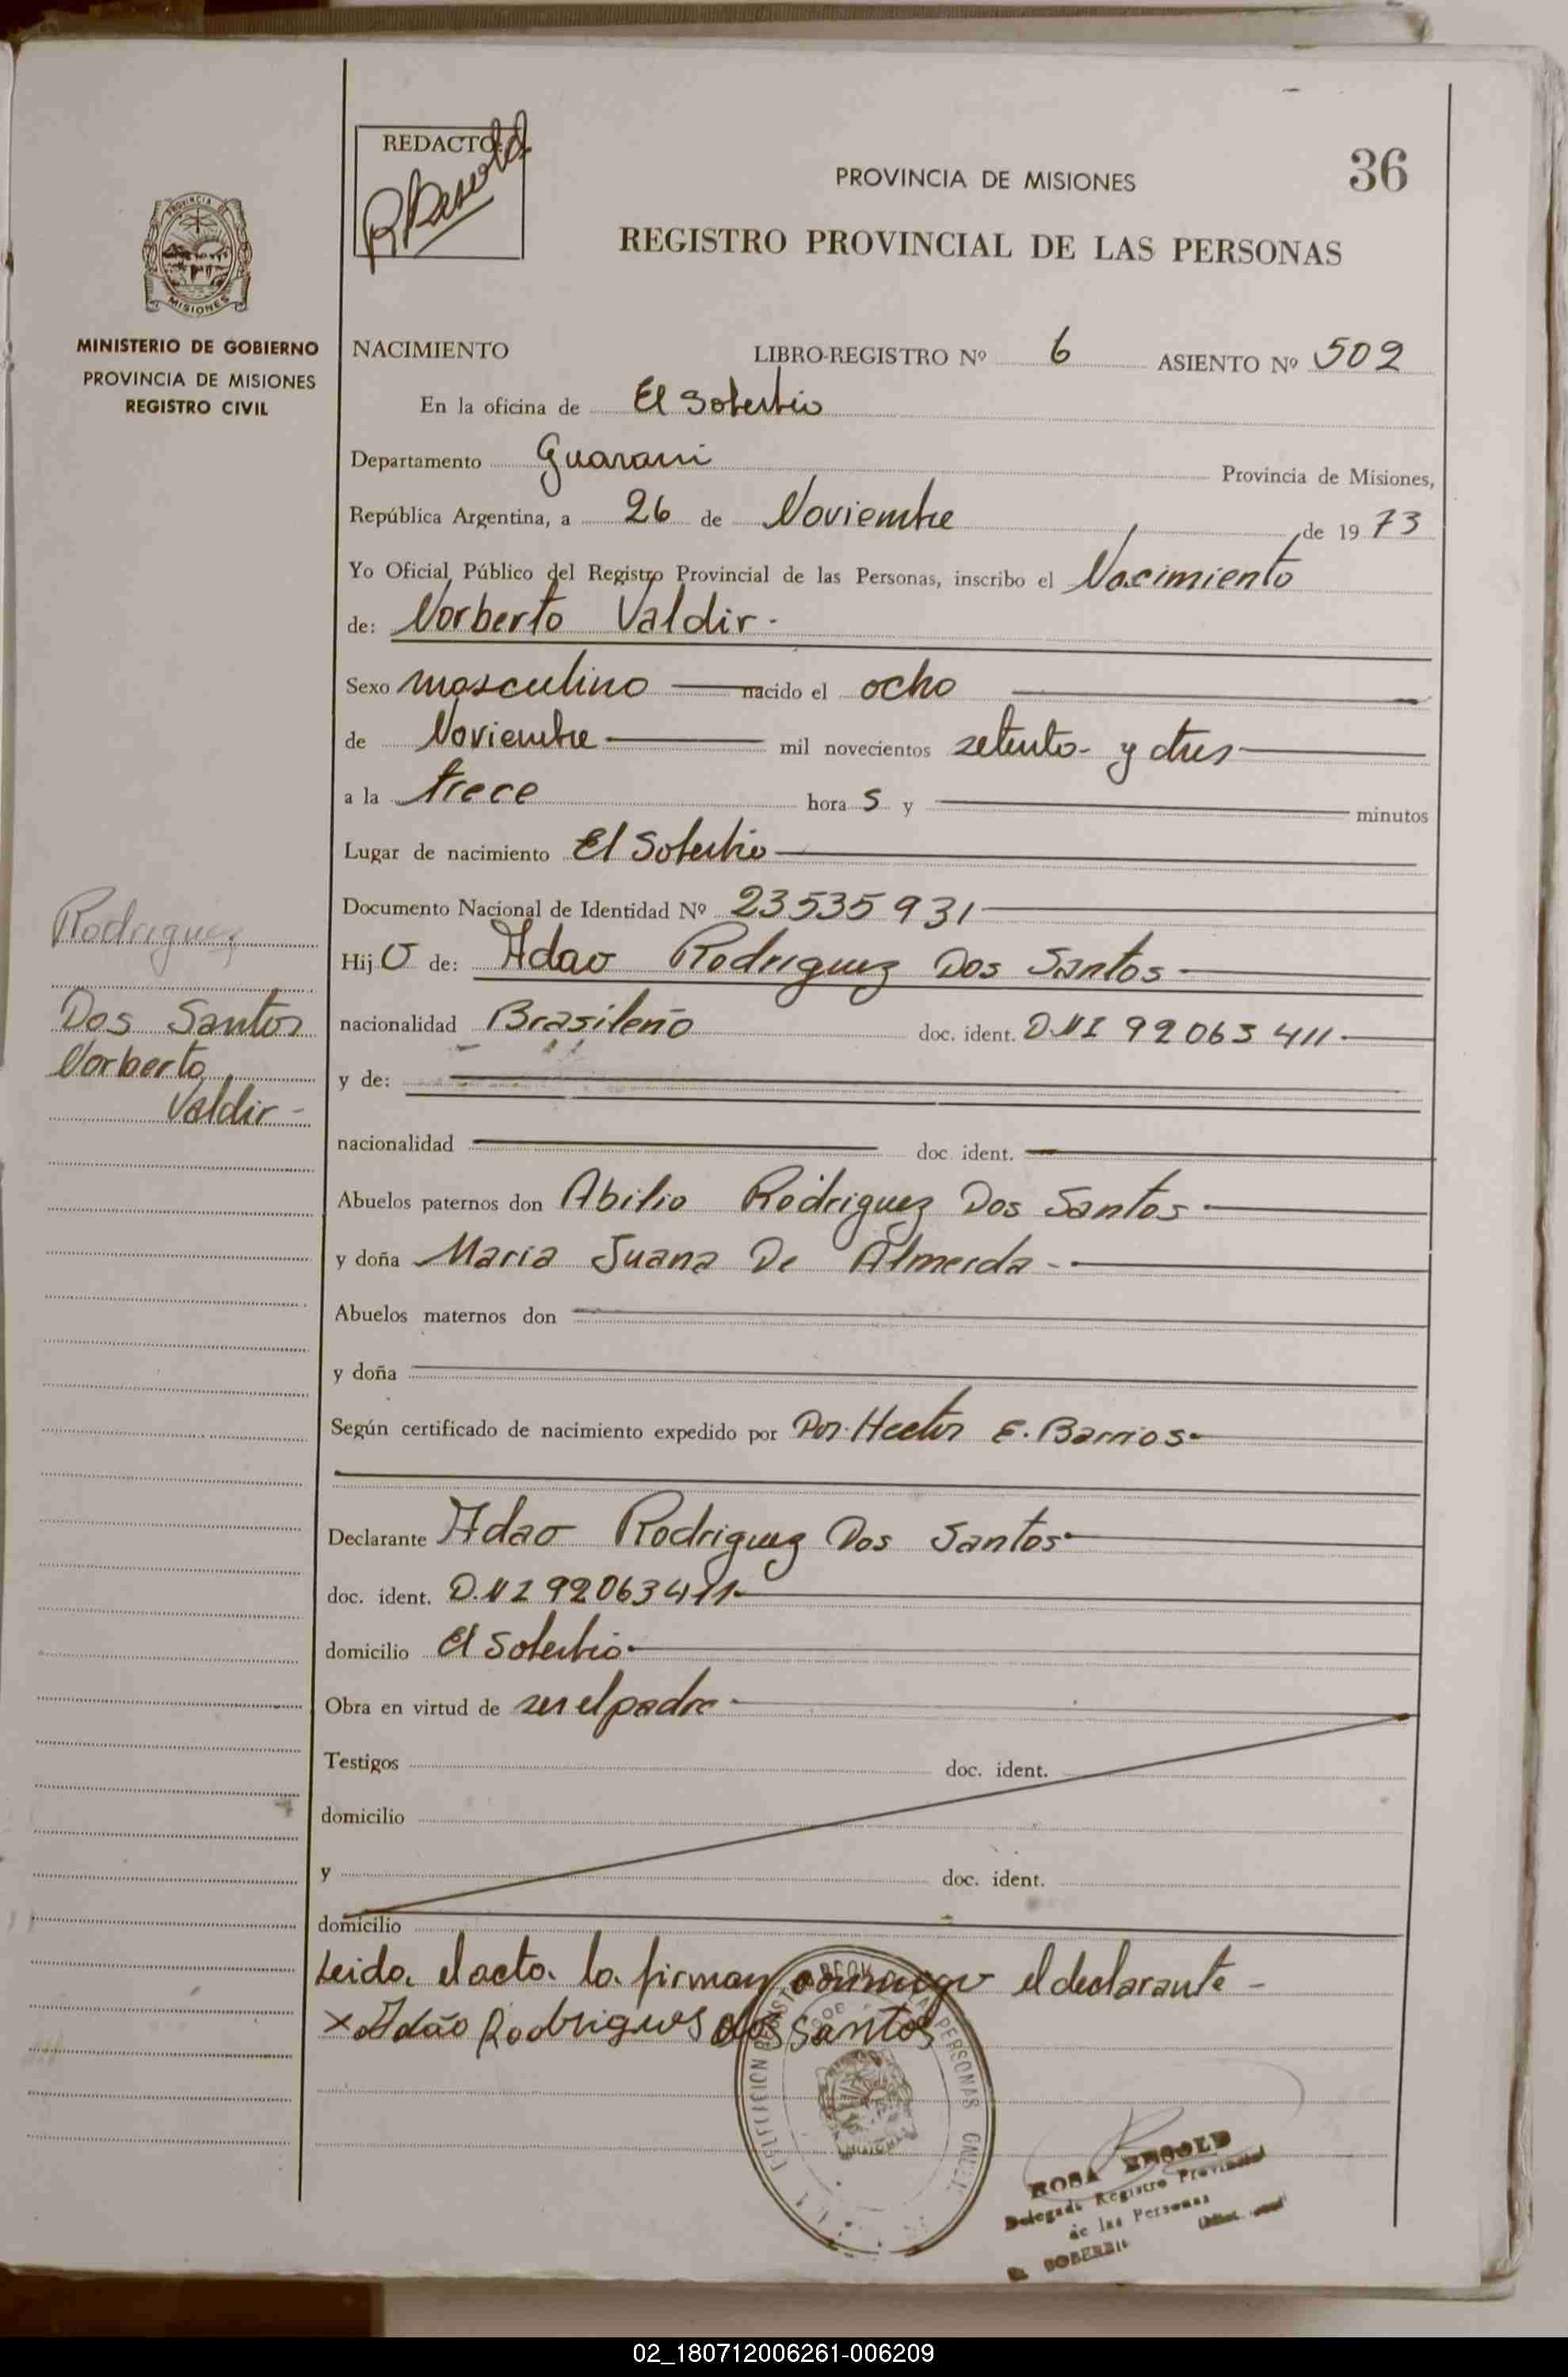 REDACTO:
PROVINCIA DE MISIONES
36
REGISTRO PROVINCIAL DE LAS PERSONAS
PROVINCIA DE
MISIONES
MINISTERIO DE GOBIERNO
PROVINCIA DE MISIONES
REGISTRO CIVIL
NACIMIENTO LIBRO-REGISTRO Nº 6 ASIENTO Nº 502
En la oficina de El Soberbio
Departamento Guarani Provincia de Misiones,
República Argentina, a 26 de Noviembre de 1973
Yo Oficial Público del Registro Provincial de las Personas, inscribo el Nacimiento
de: Norberto Valdir.
Sexo masculino nacido el ocho
de Noviembre mil novecientos setenta y tres
a la trece hora s y minutos
Lugar de nacimiento El Soberbio
Documento Nacional de Identidad Nº 23535931
Hijo de: Adao Rodriguez Dos Santos
nacionalidad Brasileño doc. ident. D.N.I 92063411
y de:
nacionalidad doc. ident.
Abuelos paternos don Abilio Rodriguez Dos Santos
y doña Maria Juana De Almeida
Abuelos maternos don
y doña
Según certificado de nacimiento expedido por Dor. Hector E. Barrios
Declarante Adao Rodriguez Dos Santos
doc. ident. D.N.I 92063411
domicilio El Soberbio
Obra en virtud de ser el padre
Testigos doc. ident.
domicilio
y doc. ident.
domicilio
Leida el acta la firman conmigo el declarante
x Adão Rodrigues dos Santos
Rodriguez
Dos Santos
Norberto
Valdir
PERSONAS
ROSA
Delegada Registro Provincial
de las Personas
SOBERBIO
02_180712006261-006209